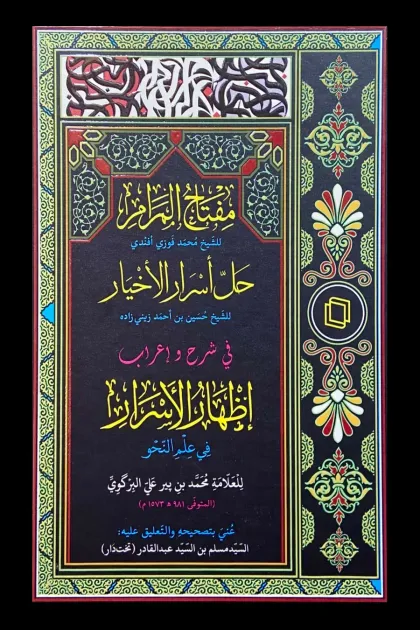 مفتاح المرام
للشيخ محمد فوزي أفندي
حل أسرار الأخيار
للشيخ حسين بن أحمد زيني زاده
في شرح و إعراب
إظهار الأسرار
في علم النحو
للعلامة محمد بن پير علي البركوي
(المتوفى ٩٨١ ه ١٥٧٣ م)
عني بتصحيحه والتعليق عليه:
السيد مسلم بن السيد عبدالقادر (تختدار)